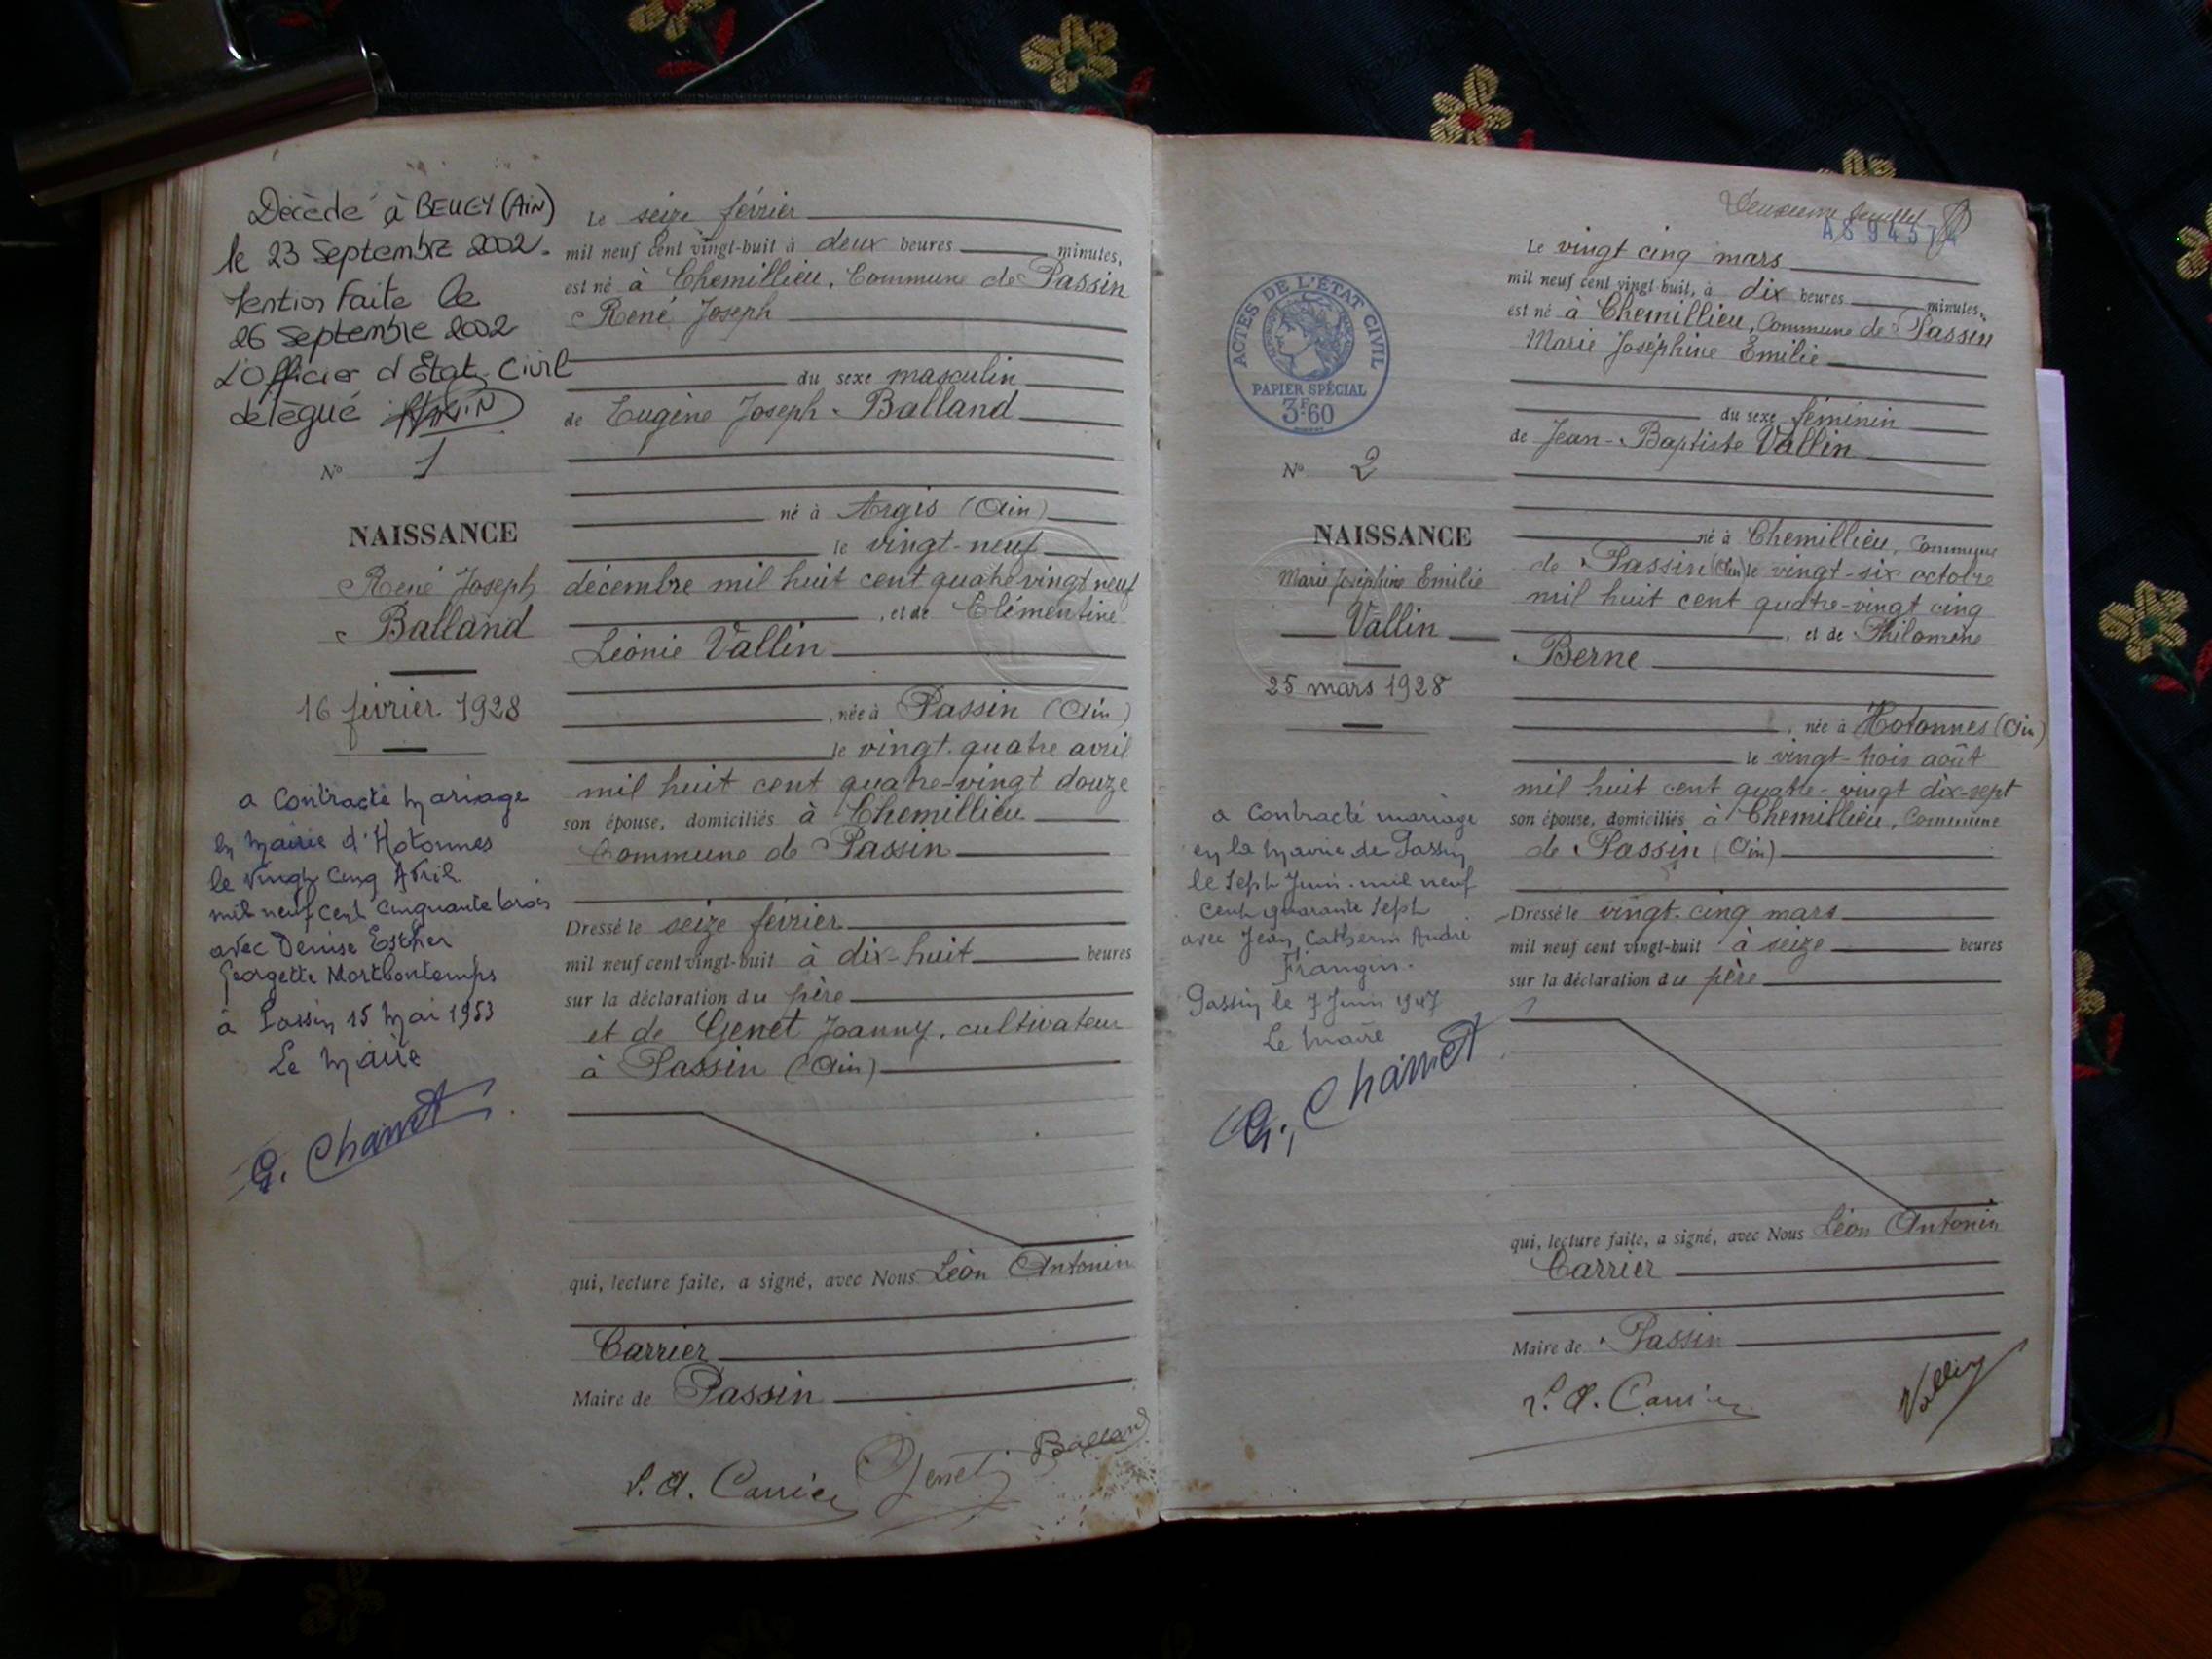 Décédé à BELLEY (AiN)
le 23 Septembre 2002.
Mention Faite le
26 Septembre 2002
L'Officier d'Etat Civil
délégué
No 1
NAISSANCE
René Joseph
Balland
16 février 1928
a Contracté Mariage
en Mairie d'Hotonnes
le Vingt Cinq Avril
mil neuf cent cinquante trois
avec Denise Esther
Georgette Montbontemps
à Passin 15 Mai 1953
Le Maire
G. Charvet
Le seize février
mil neuf cent vingt-huit à deux heures minutes,
est né à Chemillieu, Commune de Passin
René Joseph
du sexe masculin
de Eugène Joseph Balland
né à Argis (Ain)
le vingt-neuf
décembre mil huit cent quatre-vingt neuf
, et de Clémentine
Léonie Vallin
, née à Passin (Ain)
le vingt-quatre avril
mil huit cent quatre-vingt douze
son épouse, domiciliés à Chemillieu
Commune de Passin
Dressé le seize février
mil neuf cent vingt-huit à dix-huit heures
sur la déclaration du père
et de Genet Joanny, cultivateur
à Passin (Ain)
qui, lecture faite, a signé, avec Nous Léon Antonin
Carrier
Maire de Passin
L. A. Carrier Genet Balland
Deuxième feuillet
ACTES DE L'ÉTAT CIVIL
PAPIER SPÉCIAL
3F60
No 2
NAISSANCE
Marie Joséphine Emilie
Vallin
25 mars 1928
a Contracté mariage
en la Mairie de Passin
le Sept Juin mil neuf
cent quarante Sept
avec Jean Catherin André
Frangin.
Passin le 7 Juin 1947
Le Maire
G. Charvet
Le vingt cinq mars
mil neuf cent vingt-huit, à dix heures minutes,
est né à Chemillieu, Commune de Passin
Marie Joséphine Emilie
du sexe féminin
de Jean-Baptiste Vallin
né à Chemillieu, Commune
de Passin (Ain) le vingt-six octobre
mil huit cent quatre-vingt cinq
, et de Philomène
Berne
, née à Hotonnes (Ain)
le vingt-trois août
mil huit cent quatre-vingt dix-sept
son épouse, domiciliés à Chemillieu, Commune
de Passin (Ain)
Dressé le vingt-cinq mars
mil neuf cent vingt-huit à seize heures
sur la déclaration du père
qui, lecture faite, a signé, avec Nous Léon Antonin
Carrier
Maire de Passin
L. A. Carrier Vallin